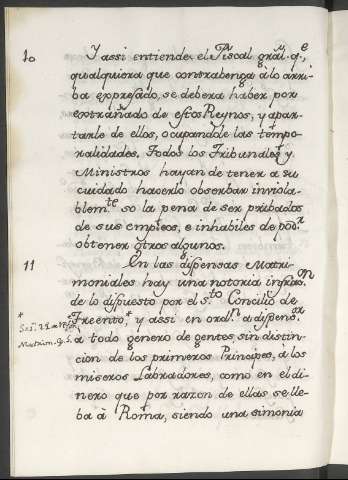 10 Y assi entiende el Fiscal gral. q.e
qualquiera que contrabenga â lo arri-
ba expresado, se debera haber por
extrañado de estos Reynos, y apar-
tarle de ellos, ocupandole las tempo-
ralidades. Todos los Tribunales, y
Ministros hayan de tener a su
cuidado hacerlo obserbar inviola-
blem.te so la pena de ser pribados
de sus empleos, e inhabiles de pod.r
obtener otros algunos.
11 En las dispensas Matri-
moniales hay una notoria infrac.on
de lo dispuesto por el s.to Concilio de
* Treento,* y assi en ord.n a dispens.ar
Matrim. c. 5. a todo genero de gentes sin distin-
cion de los primeros Principes, â los
miseros Labradores, como en el di-
nero que por razon de ellas se lle-
ba à Roma, siendo una simonia